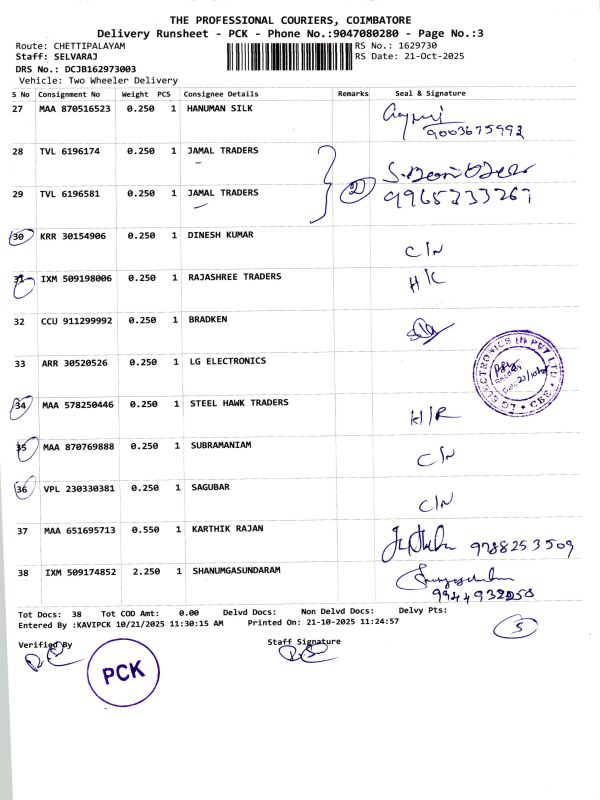 THE PROFESSIONAL COURIERS, COIMBATORE
Delivery Runsheet - PCK - Phone No.:9047080280 - Page No.:3
Route: CHETTIPALAYAM RS No.: 1629730
Staff: SELVARAJ RS Date: 21-Oct-2025
DRS No.: DCJB162973003
Vehicle: Two Wheeler Delivery
S No Consignment No Weight PCS Consignee Details Remarks Seal & Signature
27 MAA 870516523 0.250 1 HANUMAN SILK
9003675992
28 TVL 6196174 0.250 1 JAMAL TRADERS
29 TVL 6196581 0.250 1 JAMAL TRADERS 2
30 KRR 30154906 0.250 1 DINESH KUMAR C/N
31 IXM 509198006 0.250 1 RAJASHREE TRADERS H/C
32 CCU 911299992 0.250 1 BRADKEN
33 ARR 30520526 0.250 1 LG ELECTRONICS
34 MAA 578250446 0.250 1 STEEL HAWK TRADERS H/R
35 MAA 870769888 0.250 1 SUBRAMANIAM C/N
36 VPL 230330381 0.250 1 SAGUBAR C/N
37 MAA 651695713 0.550 1 KARTHIK RAJAN 9788253509
38 IXM 509174852 2.250 1 SHANUMGASUNDARAM
Tot Docs: 38 Tot COD Amt: 0.00 Delvd Docs: Non Delvd Docs: Delvy Pts:
Entered By :KAVIPCK 10/21/2025 11:30:15 AM Printed On: 21-10-2025 11:24:57
5
Verified By Staff Signature
PCK